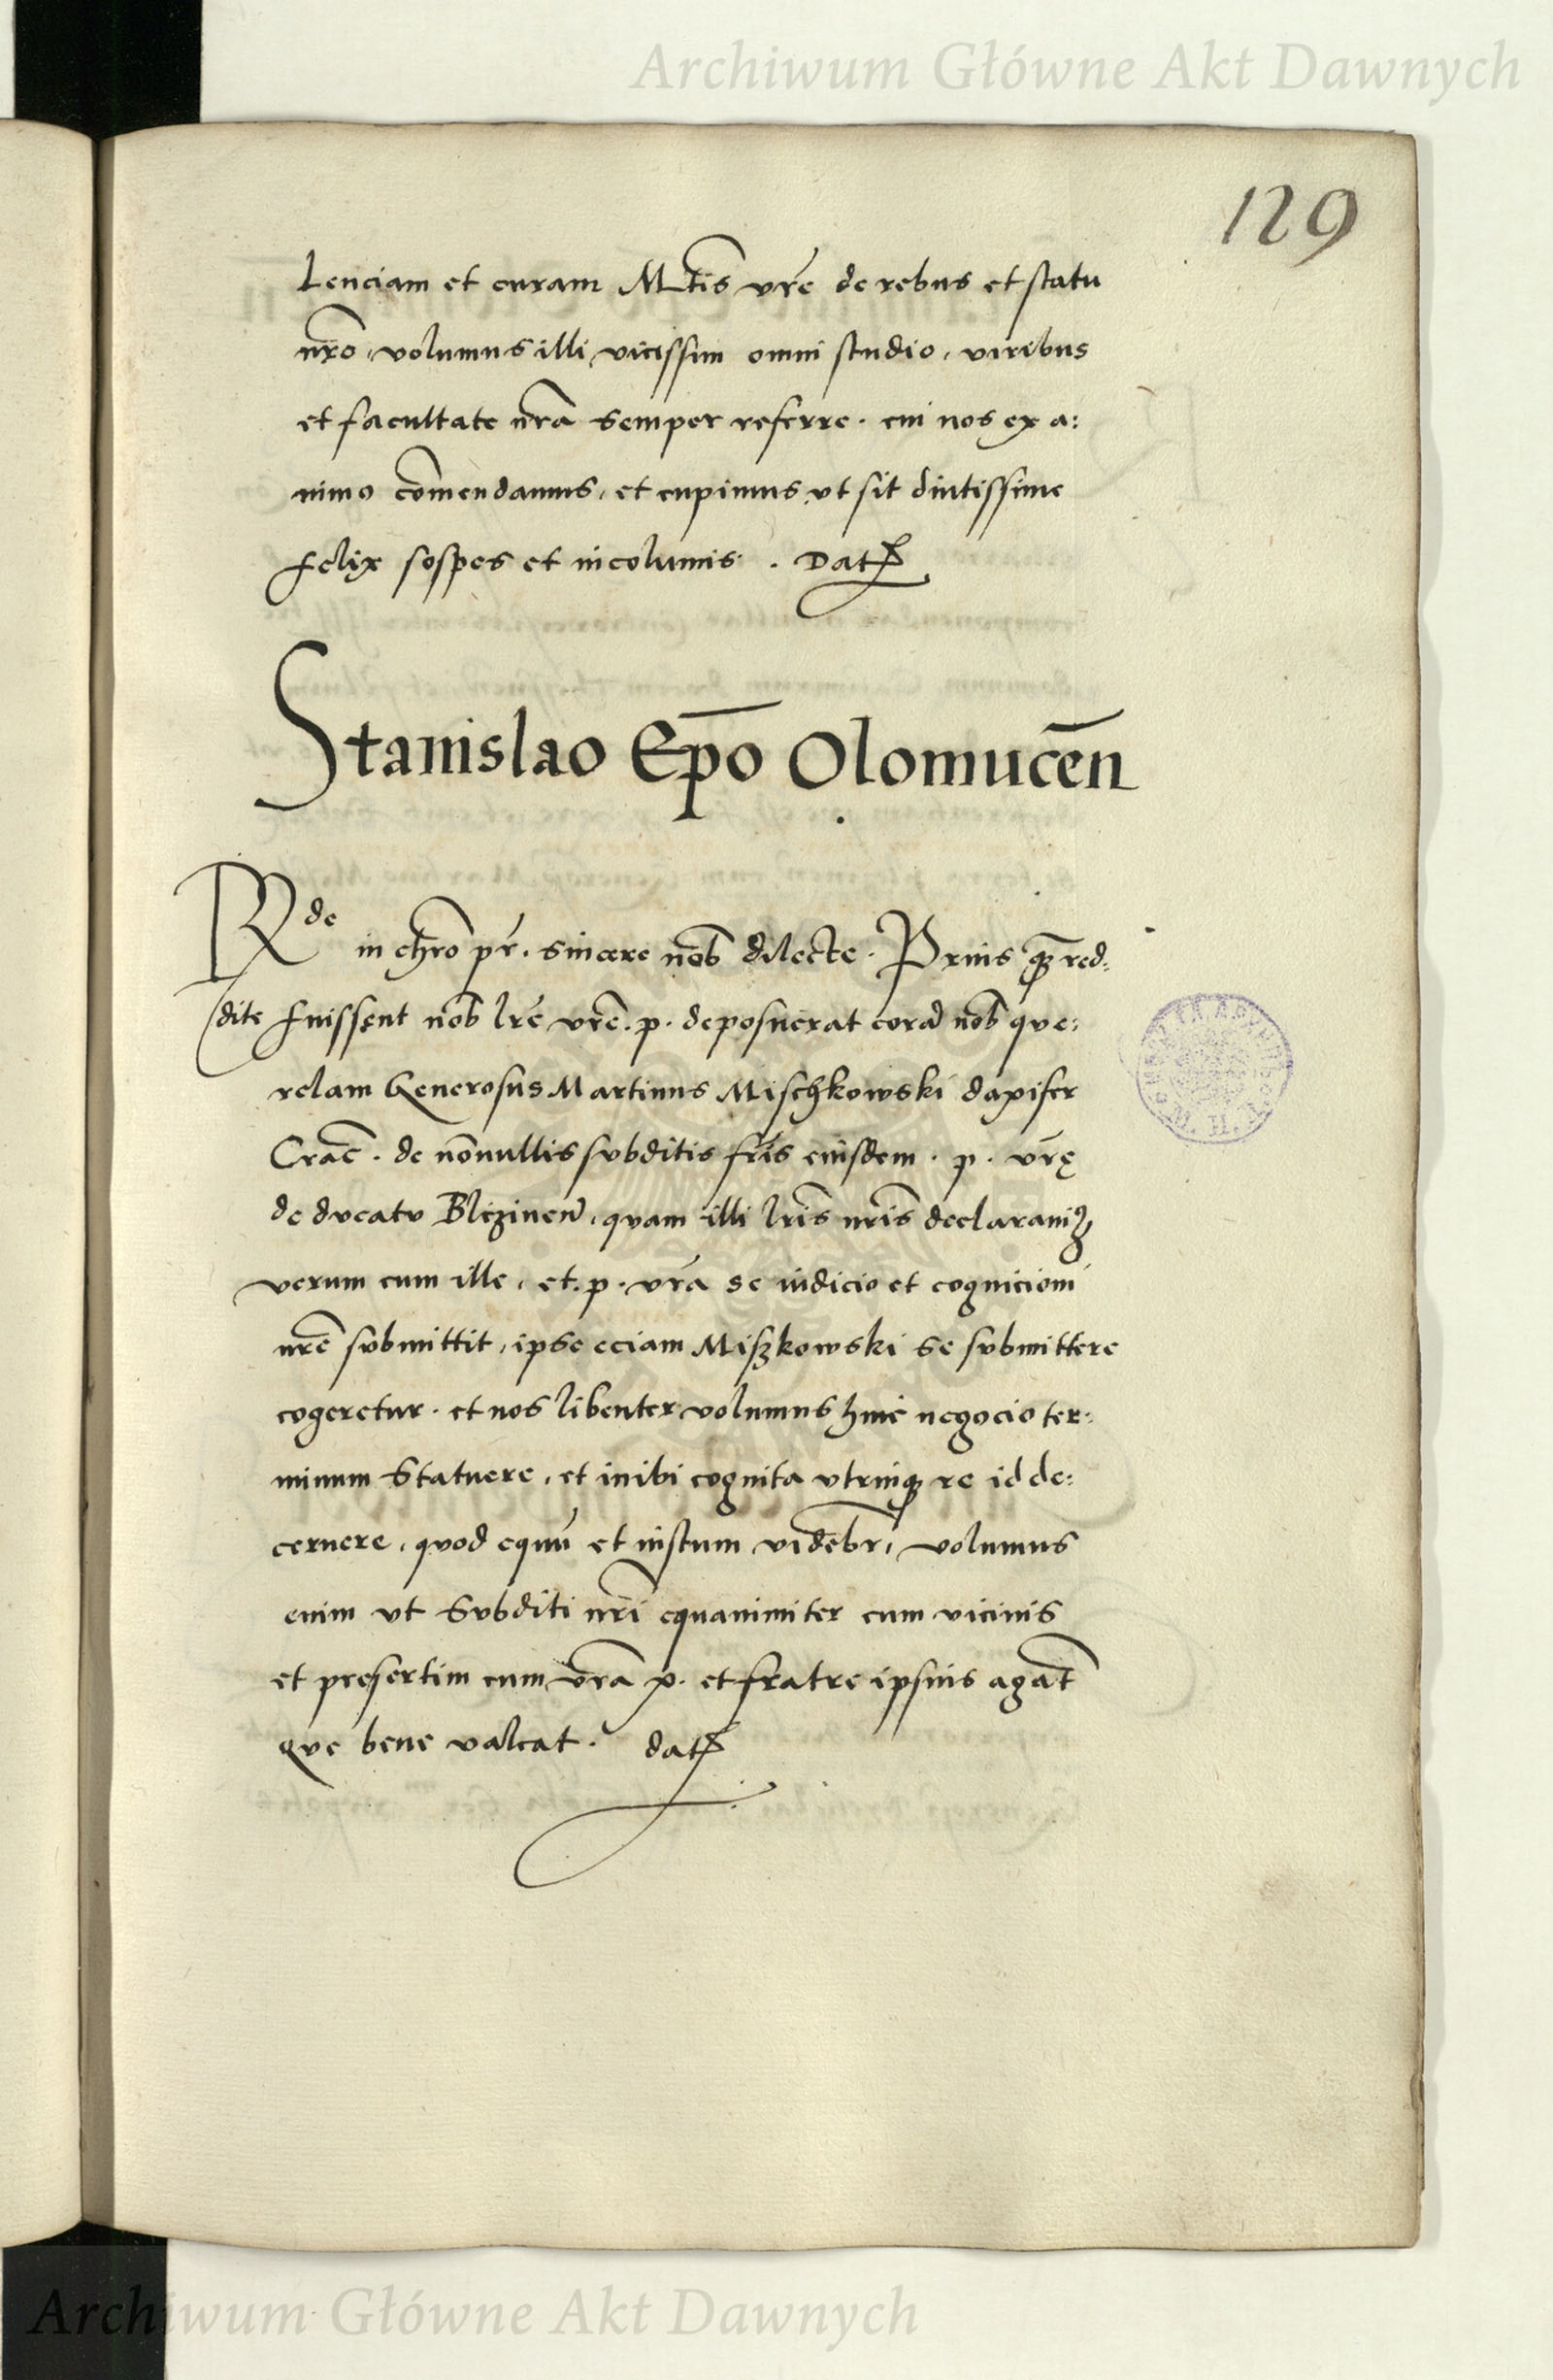 Archiwum Główne Akt Dawnych
129
lenciam et curam Mt̄is vr̄e de rebus et statu
nr̄o, volumus illi vicissim omni studio, viribus
et facultate nr̄a semper referre. cui nos ex a:
nimo com̄endamus, et cupimus vt sit diutissime
felix sospes et incolumis. Dat̄
Stanislao Ep̄o Olomucēn
Rde in chr̄o pr̄. sincere nob̄ dilecte. Prius q̄ȝ red:
dite fuissent nob̄ lr̄e vr̄e. p. deposuerat corā nob̄ que:
relam Generosus Martinus Mischkowski dapifer
Crac̄. de nōnullis subditis fr̄is eiusdem. p. vr̄ę
de ducatu quam illi lr̄is nr̄is declarauimꝫ
verum cum ille, et. p. vr̄a se iudicio et cognicioni
nr̄e submittit, ipse eciam Miszkowski se submittere
cogeretur. et nos libenter volumus huic negocio ter:
minum Statuere, et inibi cognita vtrinqȝ re id de:
cernere, quod equū et iustum videbr̄, volumus
enim vt Subditi nr̄i equanimiter cum vicinis
et presertim cum vr̄a p. et fratre ipsius agāt
Que bene valeat. dat̄
Archiwum Główne Akt Dawnych